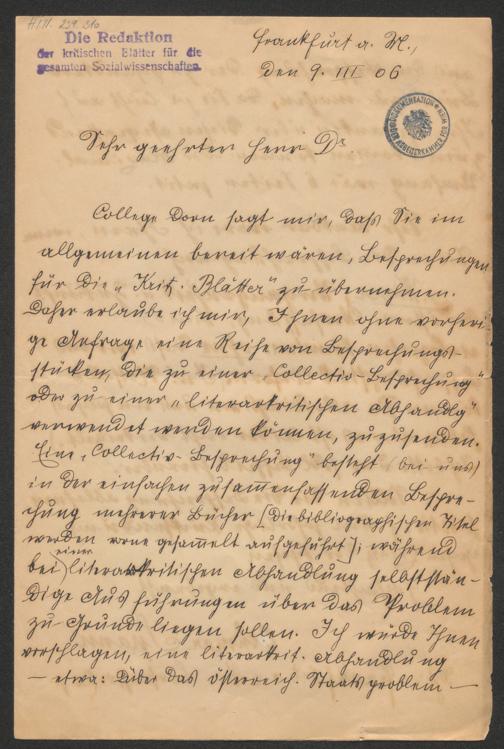 Die Redaktion
der kritischen Blätter für die
gesamten Sozialwissenschaften.
Frankfurt a. M.,
den 9. III 06
Sehr geehrter Herr Dr
College Dorn sagt mir, daß Sie im
allgemeinen bereit wären, Besprechungen
für die „Krit. Blätter" zu übernehmen.
Daher erlaube ich mir, Ihnen ohne vorheri-
ge Anfrage eine Reihe von Besprechungs-
stücken, die zu einer „Collectiv-Besprechung"
oder zu einer „literarkritischen Abhandlg"
verwendet werden können, zuzusenden.
Eine „Collectiv-Besprechung" besteht (bei uns)
in der einfachen zusammenfassenden Bespre-
chung mehrerer Bücher [die bibliographischen Titel
werden vorne gesammelt aufgeführt]; während
bei einer literarkritischen Abhandlung selbststän-
dige Ausführungen über das Problem
zu Grunde liegen sollen. Ich würde Ihnen
vorschlagen, eine literarkrit. Abhandlung
— etwa: Über das österreich. Staatsproblem —